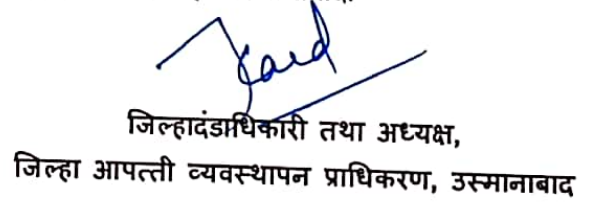 जिल्हादंडाधिकारी तथा अध्यक्ष,
जिल्हा आपत्ती व्यवस्थापन प्राधिकरण, उस्मानाबाद